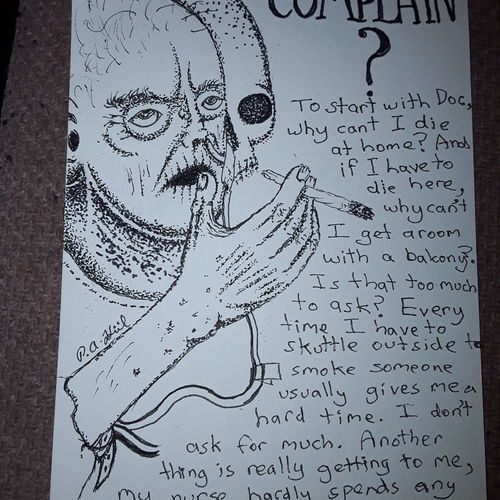 COMPLAIN
?
To start with Doc,
why cant I die
at home? And
if I have to
die here,
why can't
I get a room
with a balcony?
Is that too much
to ask? Every
time I have to
skuttle outside to
smoke someone
usually gives me a
hard time. I don't
ask for much. Another
thing is really getting to me,
my nurse hardly spends any
P.A. Heil